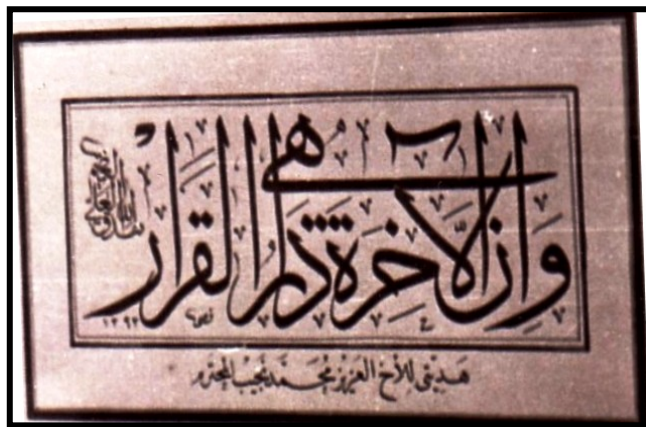 وَإِنَّ الْآخِرَةَ هِيَ دَارُ الْقَرَارِ
١٣٩٢
هديتي للأخ العزيز محمد نجيب المحترم